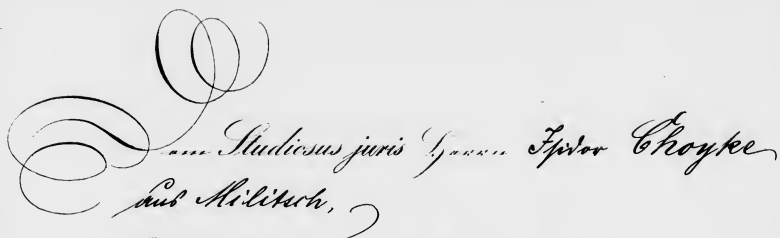 Dem Studiosus juris Herrn Isidor Choyke
aus Militsch,